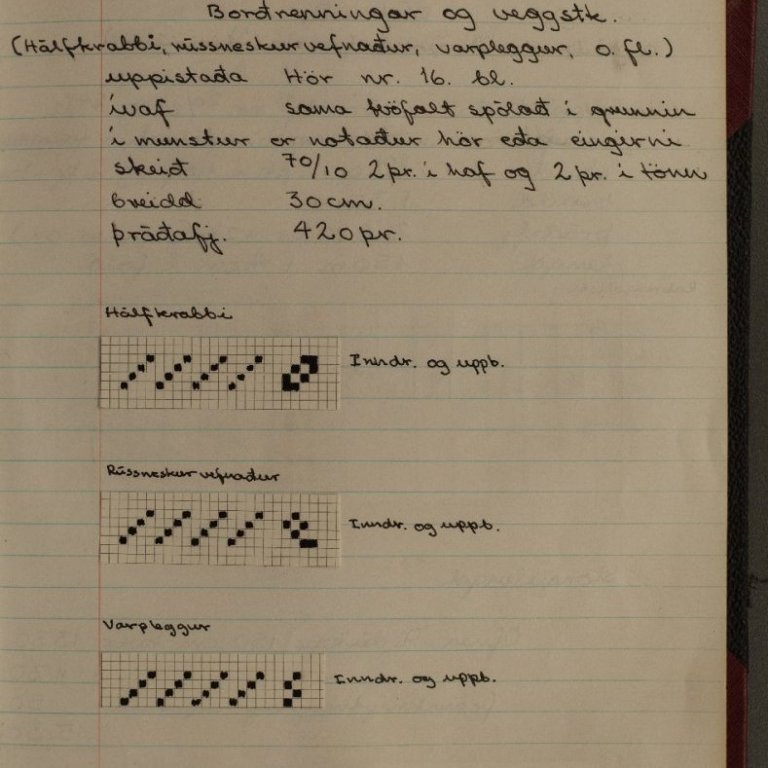 Borðrenningar og veggstk.
(Hálfkrabbi, rússneskur vefnaður, varpleggur, o. fl.)
uppistaða Hör nr. 16. bl.
ívaf sama tvöfalt spólað í grunnin
í munstur er notaður hör eða eingirni
skeið 70/10 2 pr. í haf og 2 pr. í tönn
breidd 30 cm.
þráðafj. 420 pr.
Hálfkrabbi
Inndr. og uppb.
Rússneskur vefnaður
Inndr. og uppb.
Varpleggur
Inndr. og uppb.